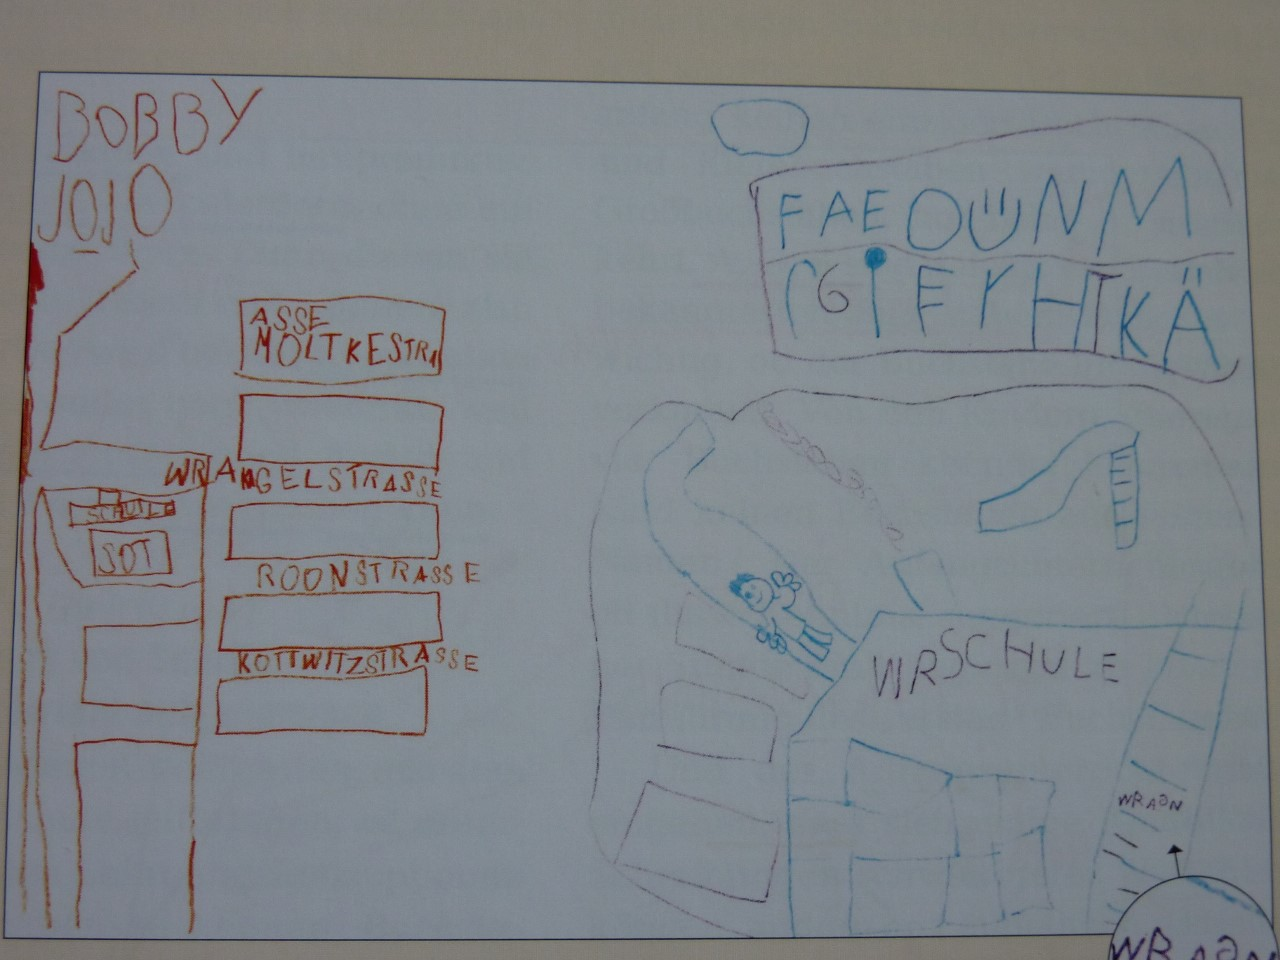 BOBBY
JOJO
ASSE
MOLTKESTRA
WRANGELSTRASSE
SCHULE
SOT
ROONSTRASSE
KOTTWITZSTRASSE
FAEOÜNM
WRSCHULE
WRAƏN
WRAƏN